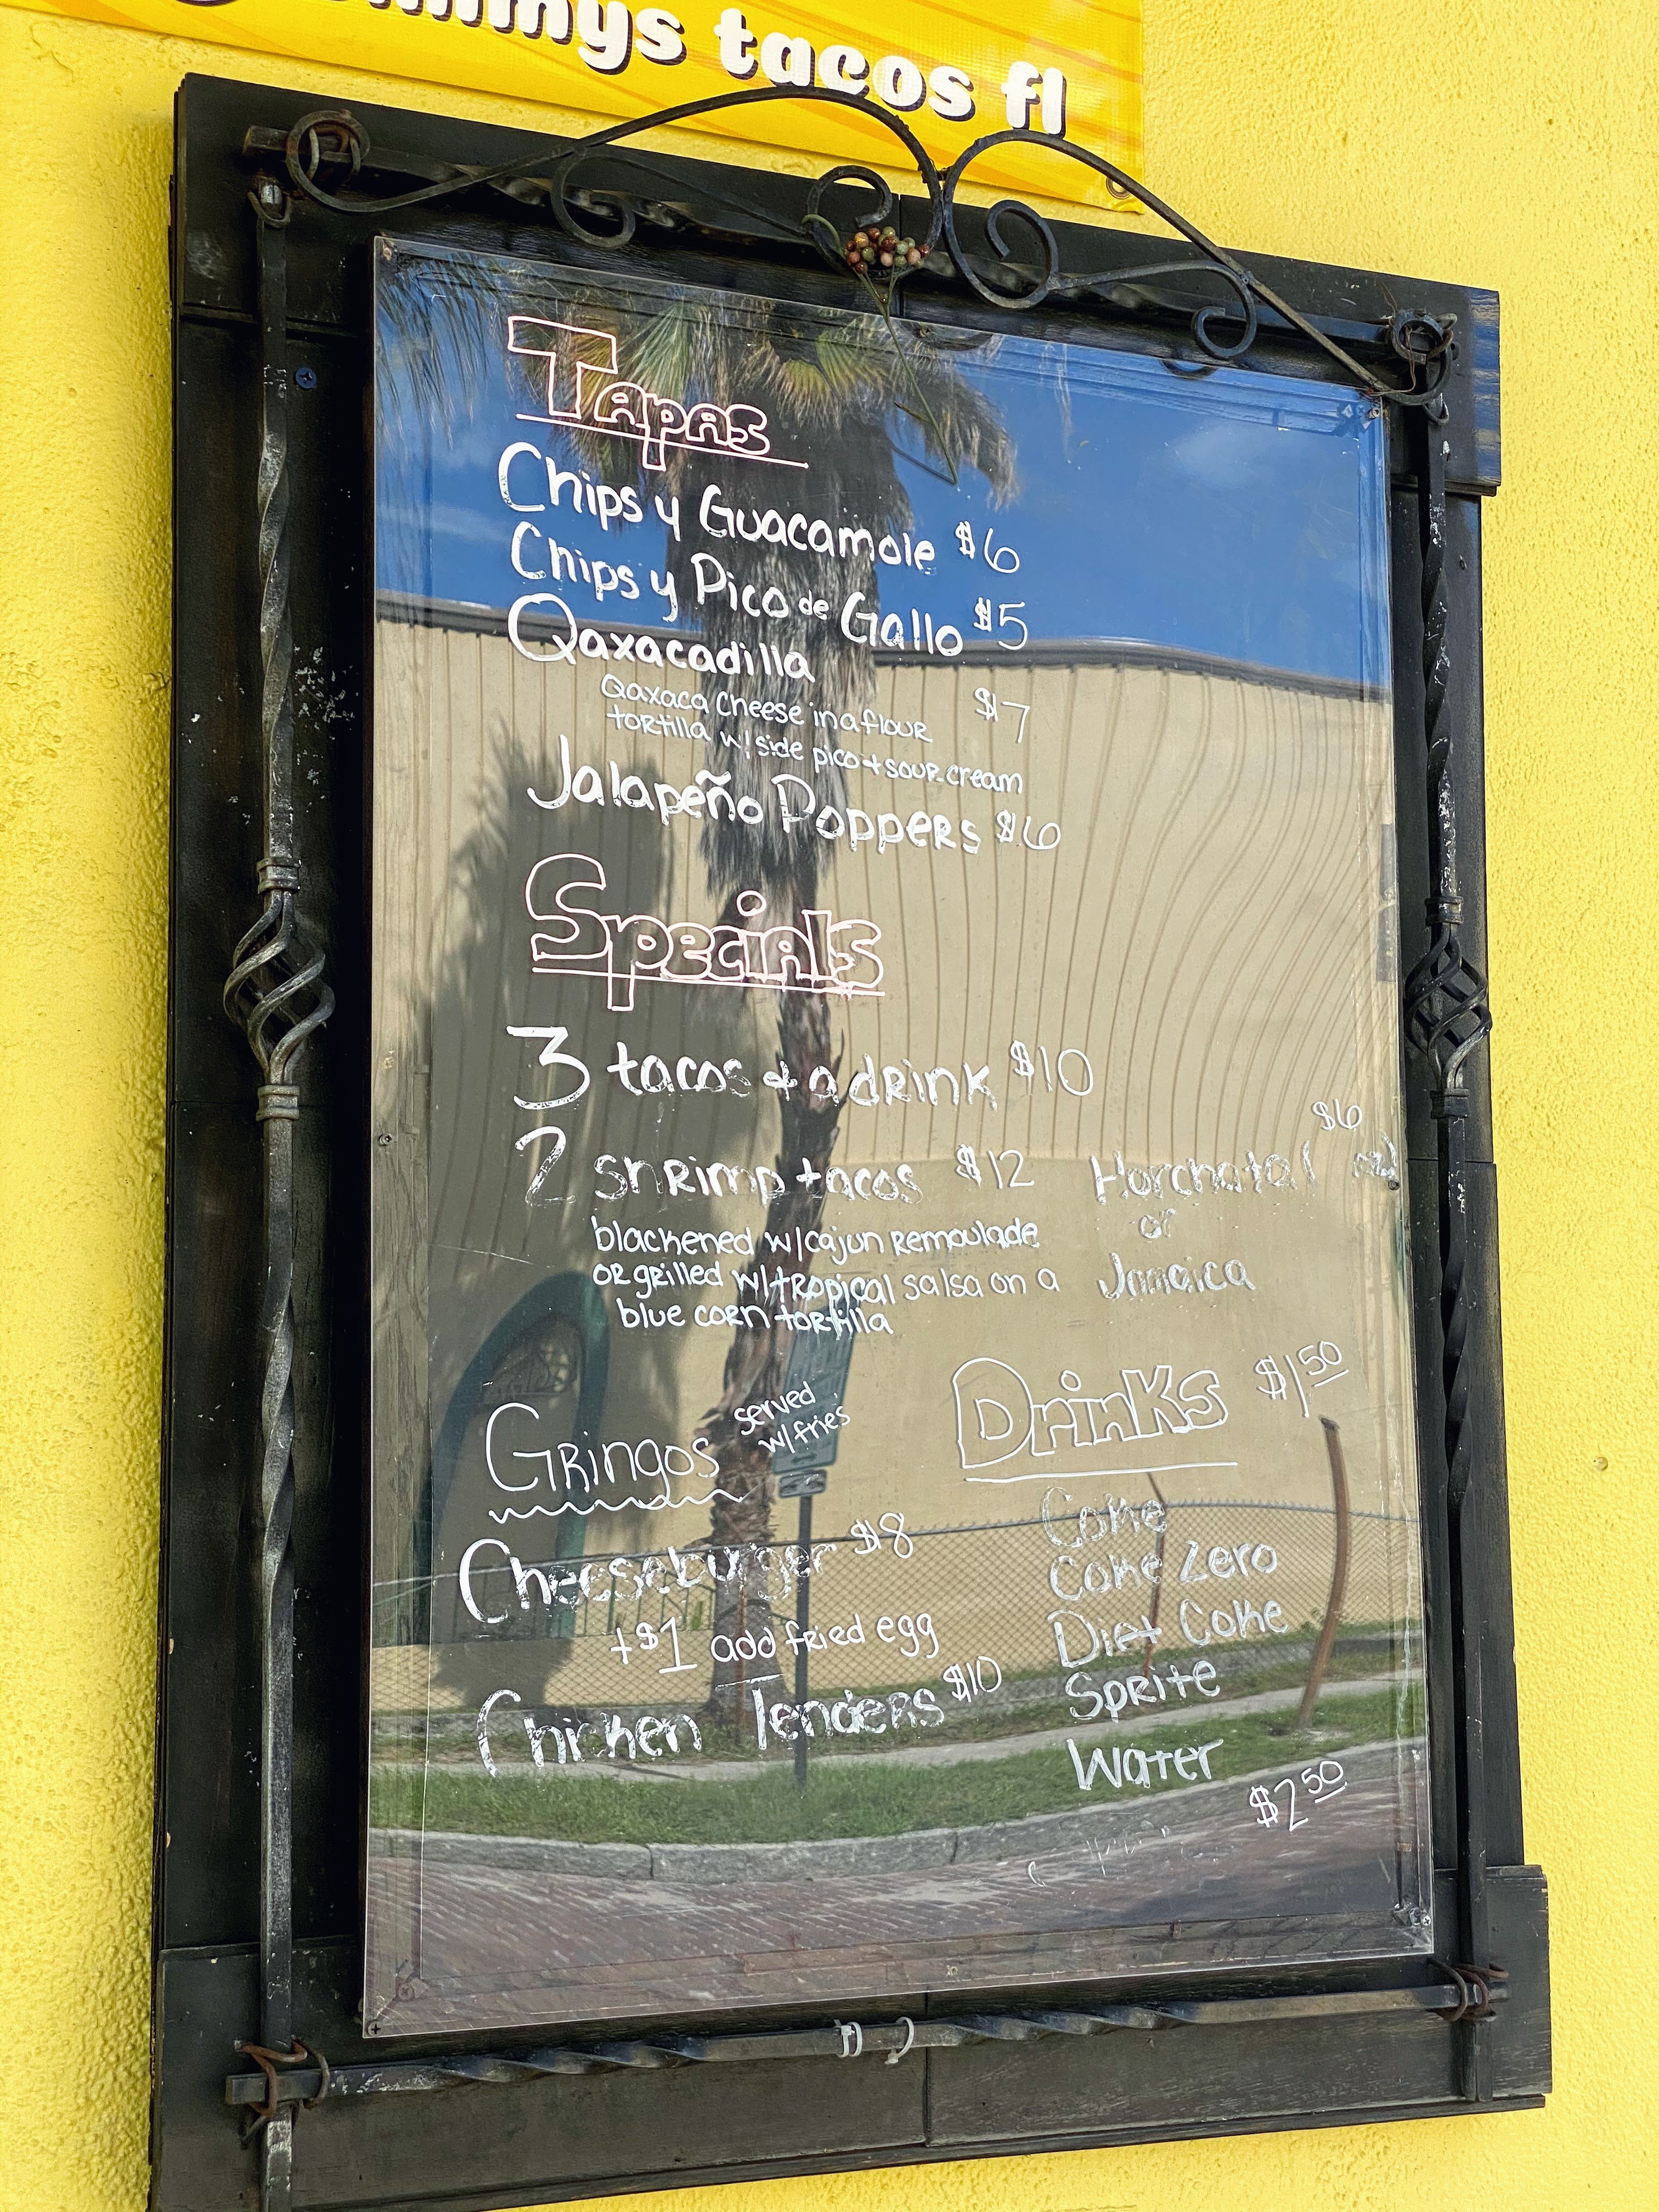 tacos fl
Tapas
Chips y Guacamole $6
Chips y Pico de Gallo $5
Oaxacadilla
Oaxaca cheese in a flour $7
tortilla w/ side pico + sour cream
Jalapeño Poppers $6
Specials
3 tacos + a drink $10
2 shrimp tacos $12
blackened w/ cajun remoulade
or grilled w/ tropical salsa on a
blue corn tortilla
$6
Horchata
or
Jamaica
Gringos served
w/ fries
Cheeseburger $8
+$1 add fried egg
Chicken Tenders $10
Drinks $1.50
Coke
Coke Zero
Diet Coke
Sprite
Water
$2.50